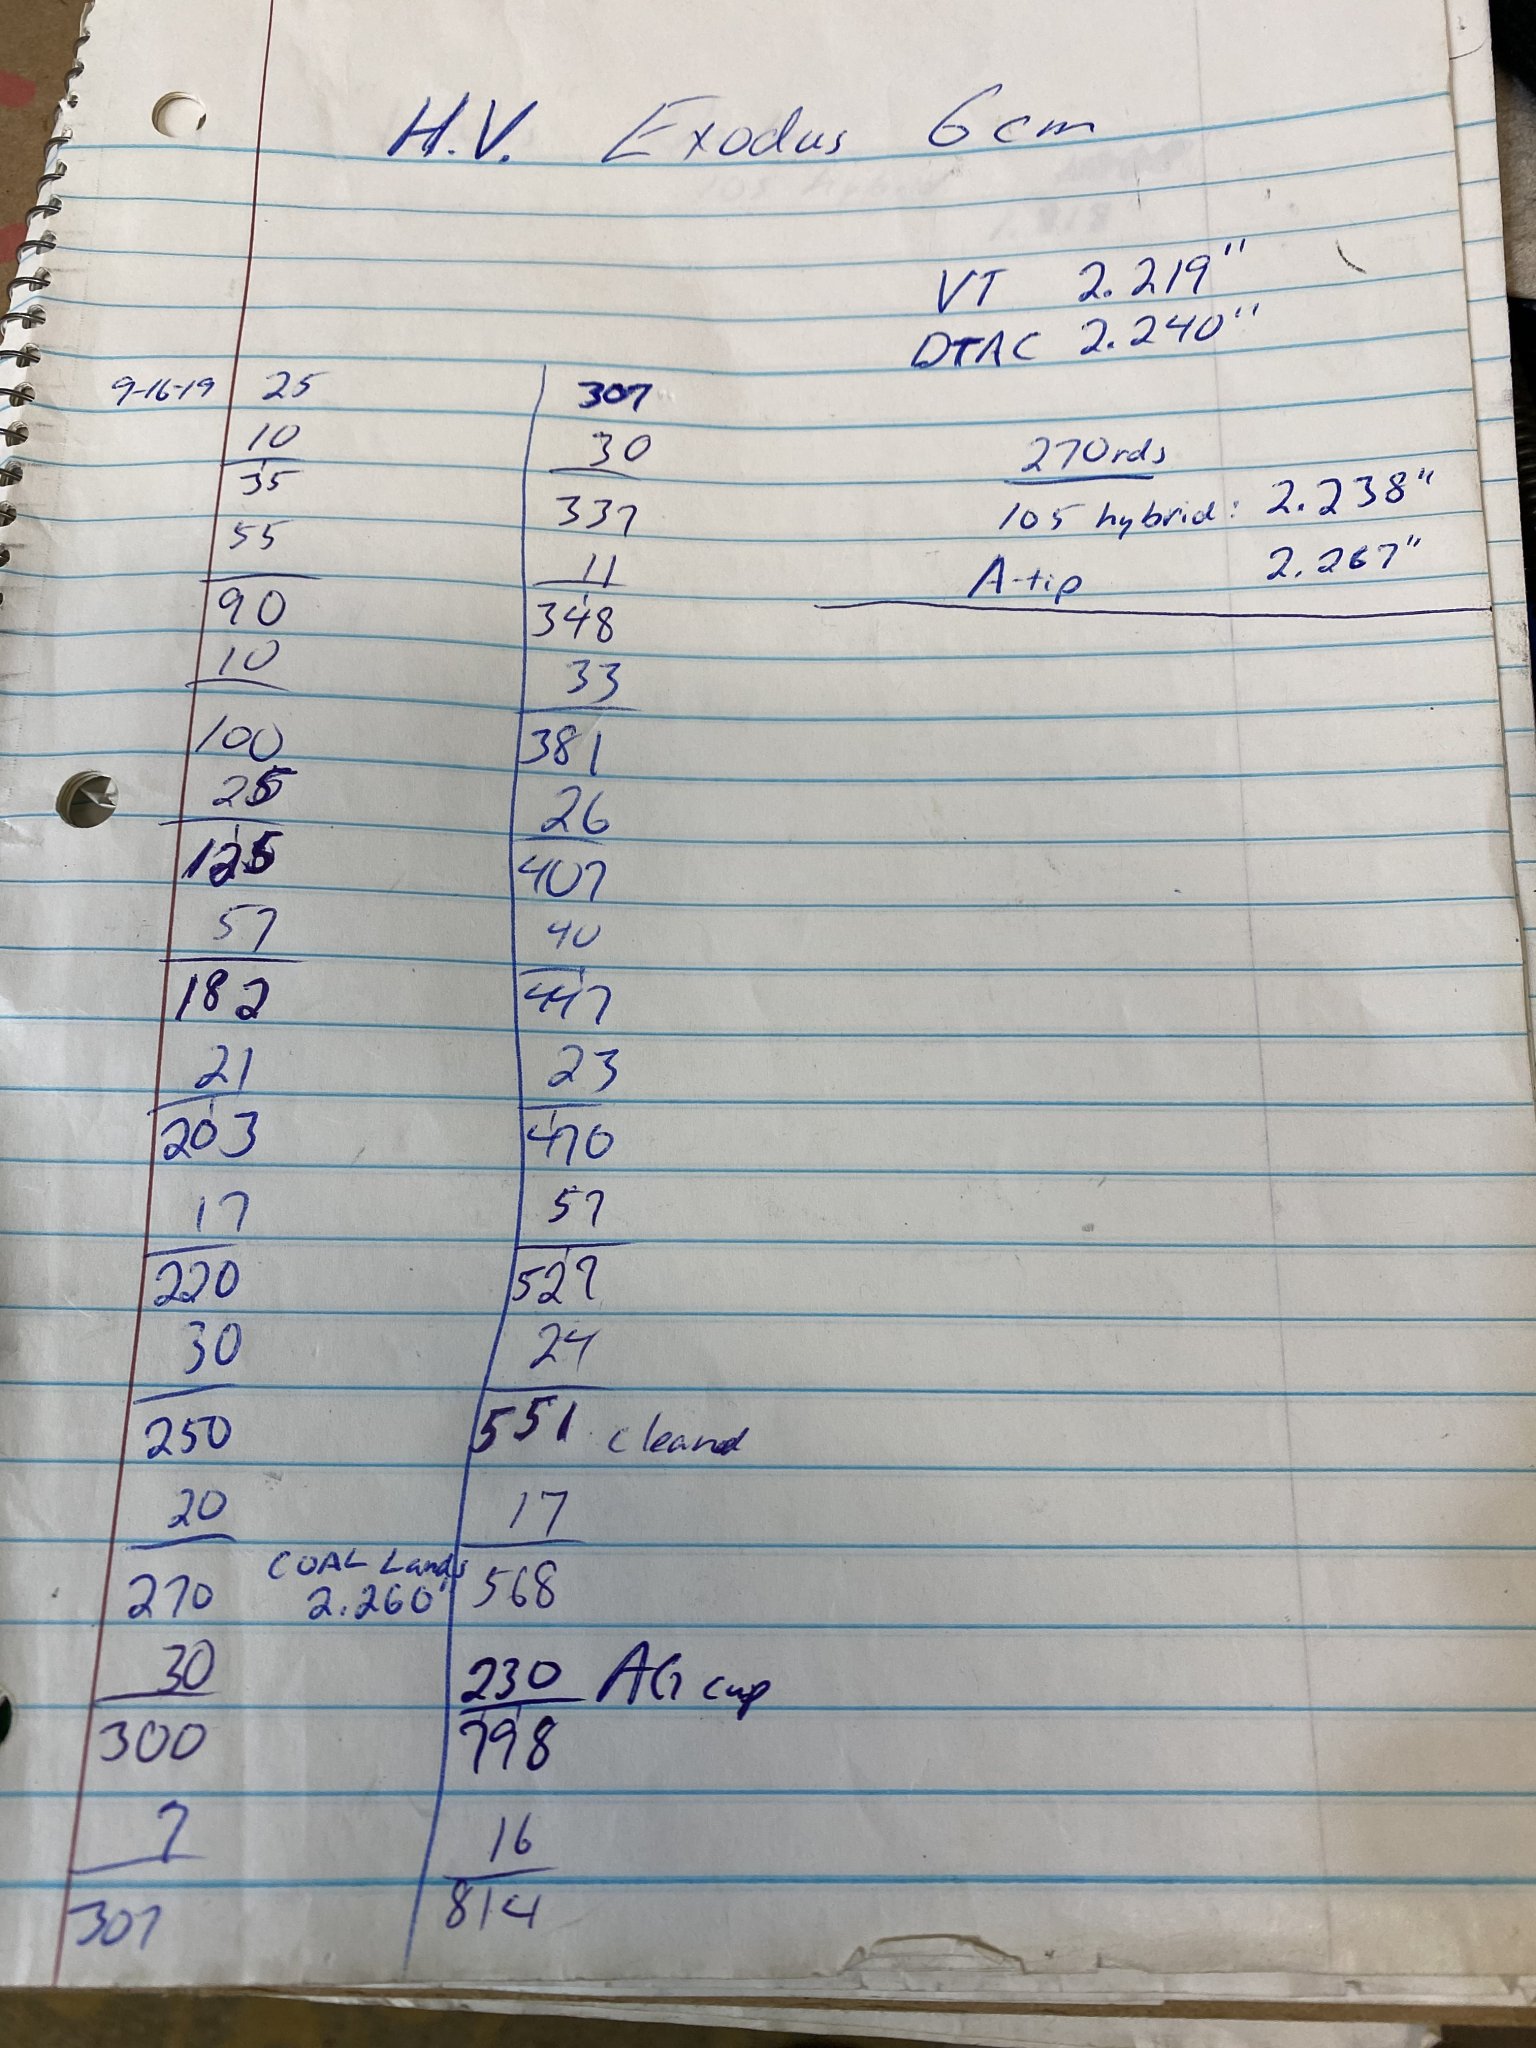 H.V. Exodus 6cm
VT 2.219"
DTAC 2.240"
270rds
105 hybrid: 2.238"
A-tip 2.267"
9-16-19 25
10
35
55
90
10
100
25
125
57
182
21
203
17
220
30
250
20
270 COAL Lands 2.260"
30
300
7
307
307
30
337
11
348
33
381
26
407
40
447
23
470
57
527
24
551 cleand
17
568
230 AG cup
798
16
814